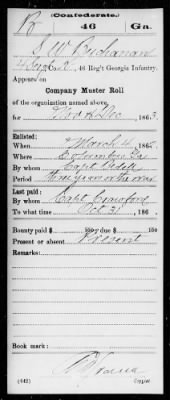 (Confederate.)
B 46 Ga.
S W Buchanan
46 Reg't Georgia Infantry.
Appears on
Company Muster Roll
of the organization named above,
for Nov & Dec, 186
Enlisted:
When March 4, 186
Where Columbus Ga
By whom Capt
Period Three years or the war
Last paid:
By whom Capt Crawford
To what time Oct 31, 186
Bounty paid $ 100; due $ 100
Present or absent Present
Remarks:
Book mark:
(642) Copyist